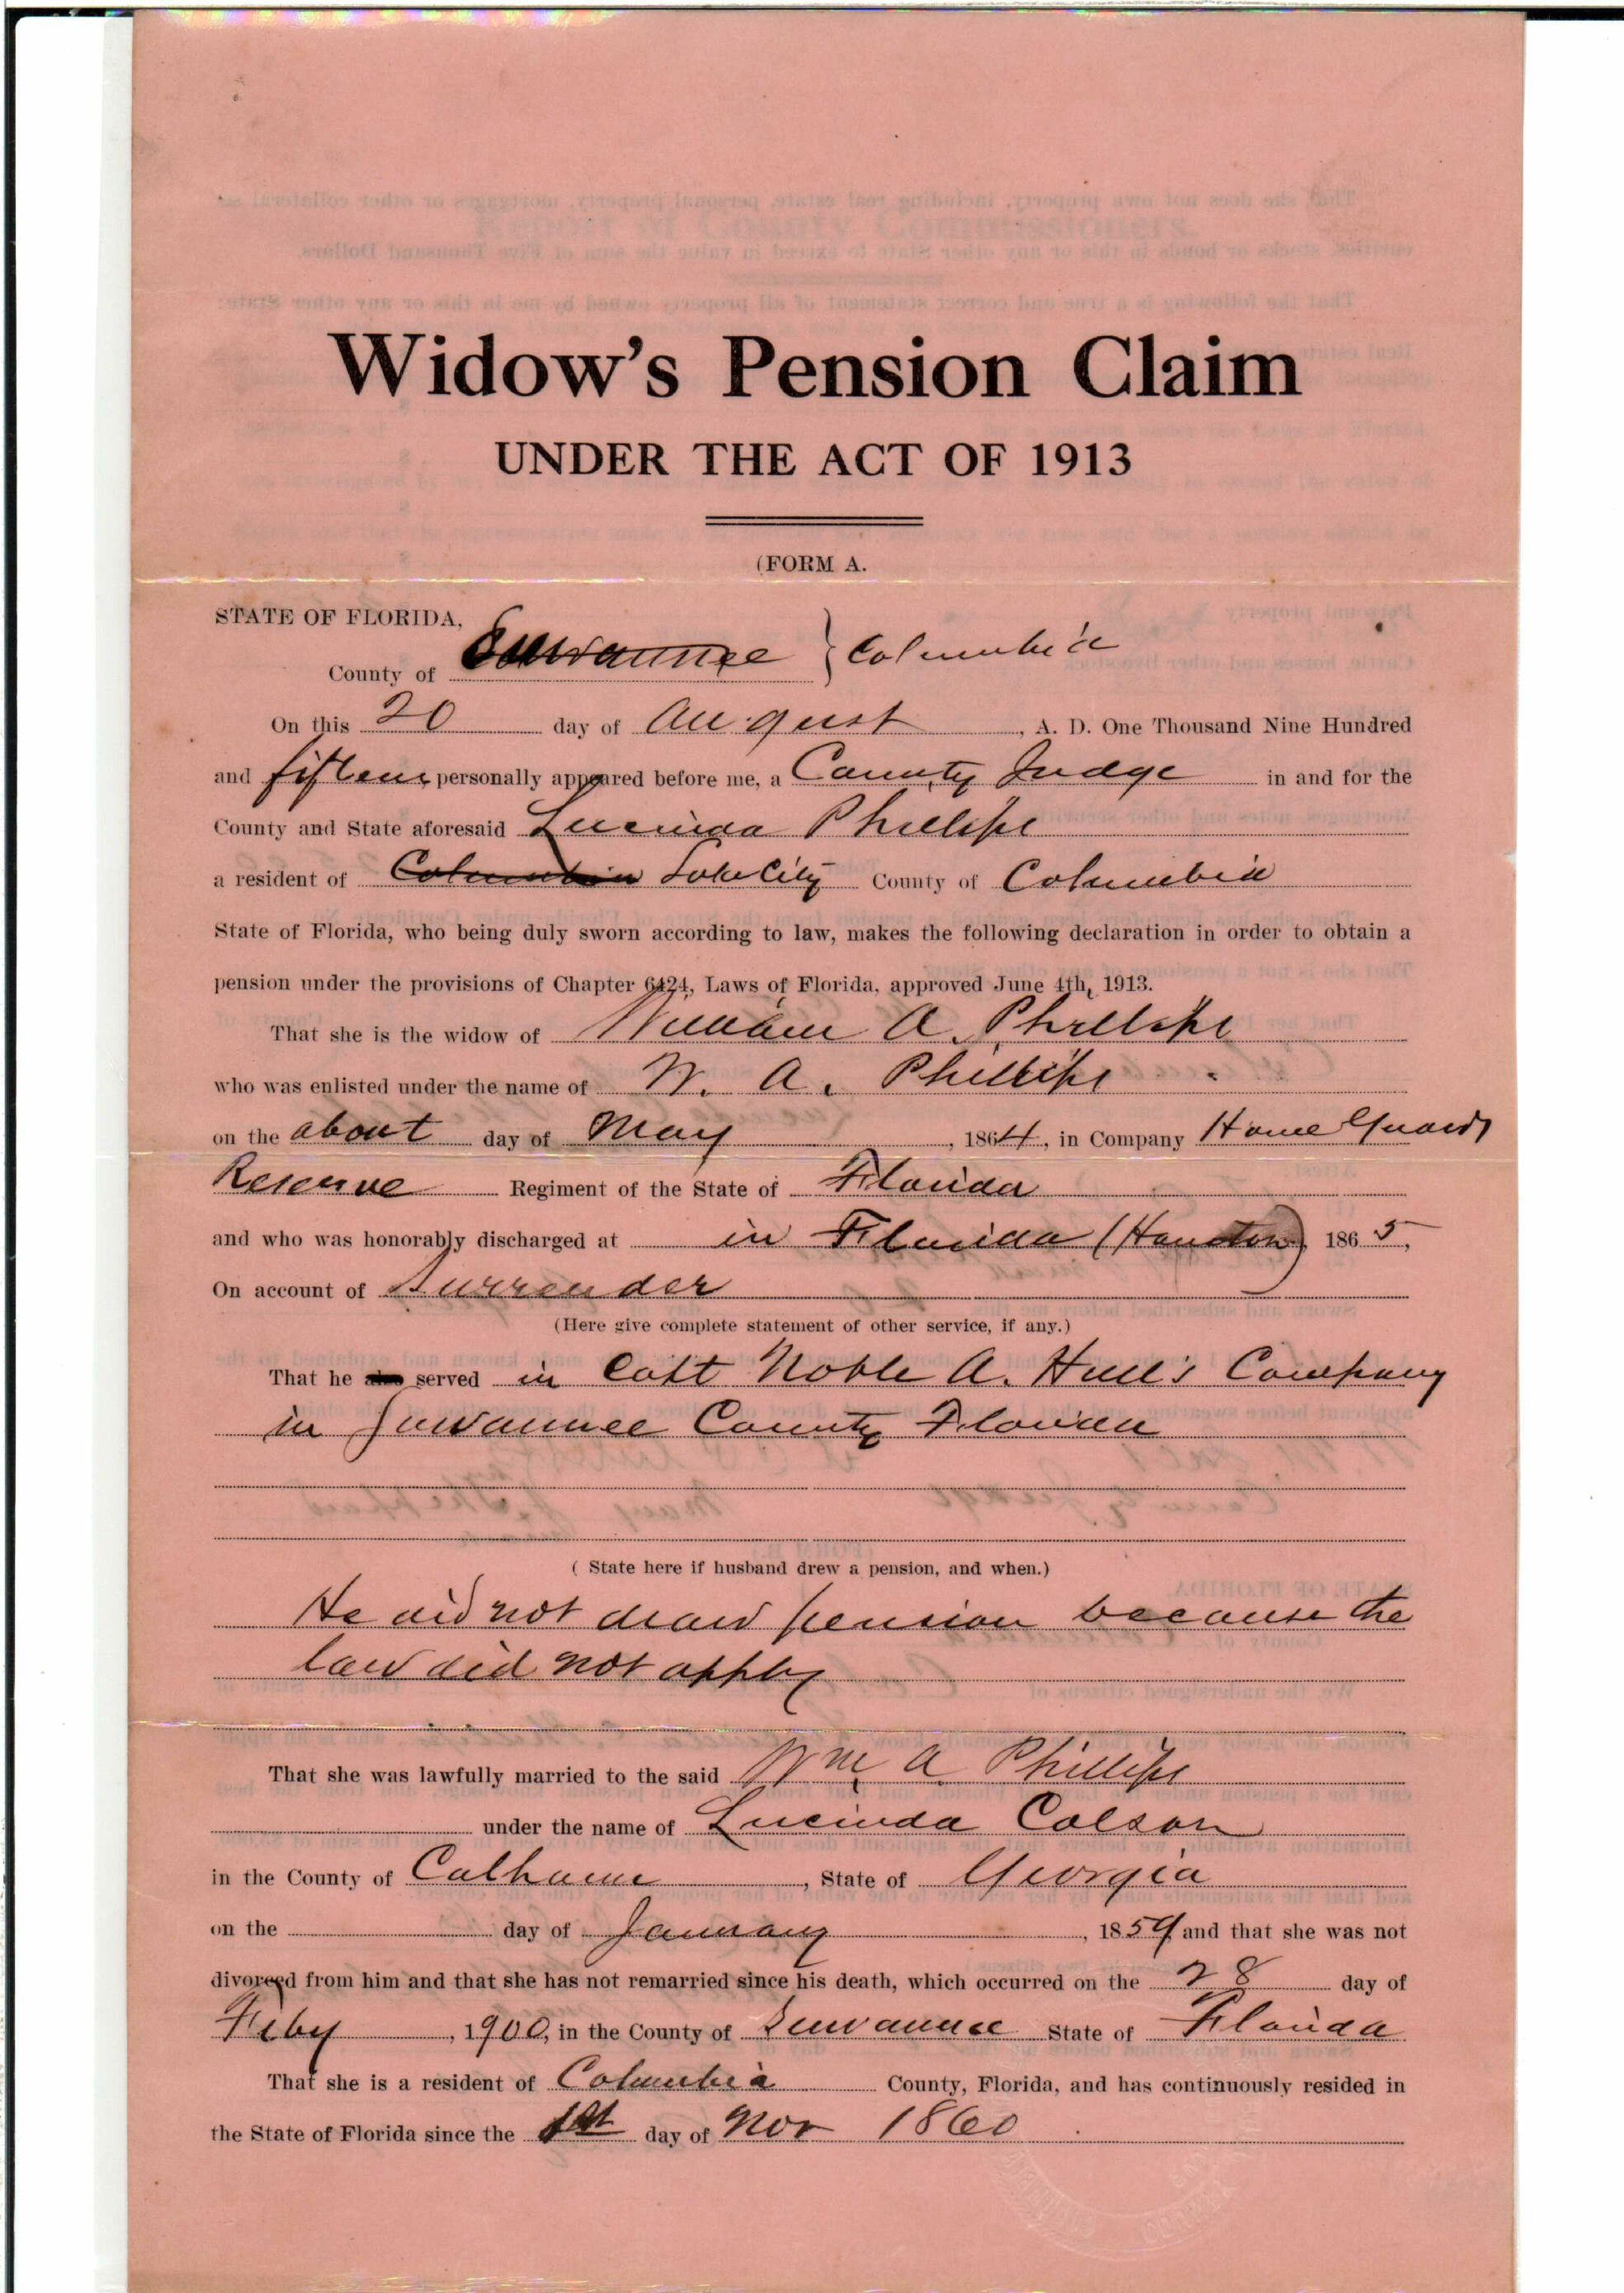 Widow's Pension Claim
UNDER THE ACT OF 1913
(FORM A.
STATE OF FLORIDA,
County of Suwannee } Columbia
On this 20 day of August, A. D. One Thousand Nine Hundred
and fifteen personally appeared before me, a County Judge in and for the
County and State aforesaid Lucinda Phillips
a resident of Columbia Lake City County of Columbia
State of Florida, who being duly sworn according to law, makes the following declaration in order to obtain a
pension under the provisions of Chapter 6424, Laws of Florida, approved June 4th, 1913.
That she is the widow of William A. Phillips
who was enlisted under the name of W. A. Phillips
on the about day of May, 1864, in Company Home Guards
Reserve Regiment of the State of Florida
and who was honorably discharged at in Florida (Houston) 1865,
On account of Surrender
(Here give complete statement of other service, if any.)
That he also served in Capt Noble A. Hull's Company
in Suwannee County Florida
( State here if husband drew a pension, and when.)
He did not draw pension because the
law did not apply
That she was lawfully married to the said Wm A Phillips
under the name of Lucinda Colson
in the County of Calhoun, State of Georgia
on the day of January, 1859 and that she was not
divorced from him and that she has not remarried since his death, which occurred on the 28 day of
Feby, 1900, in the County of Suwannee State of Florida
That she is a resident of Columbia County, Florida, and has continuously resided in
the State of Florida since the 1st day of Nov 1860